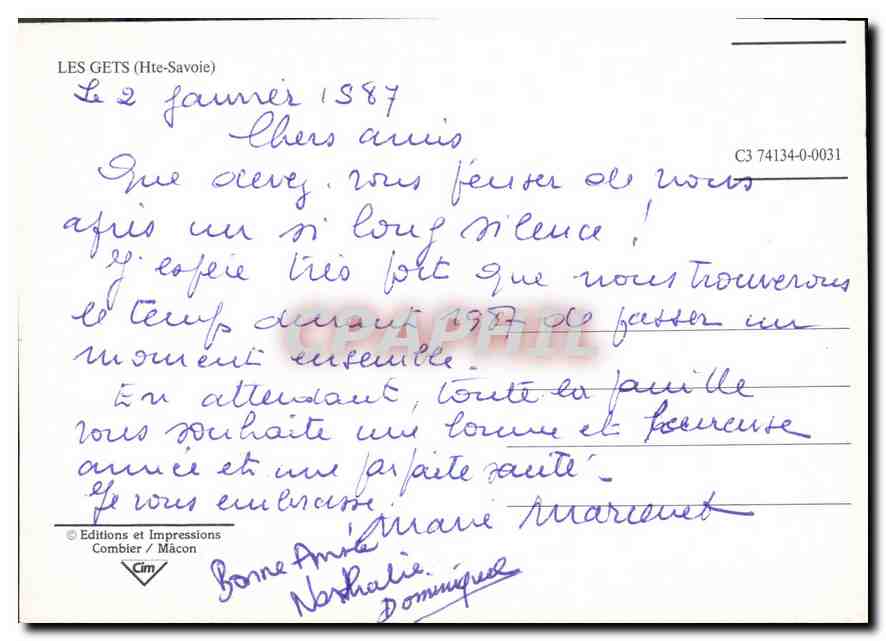 LES GETS (Hte-Savoie)
Le 2 janvier 1987
Chers amis
C3 74134-0-0031
Que devez-vous penser de nous
après un si long silence !
J'espère très fort que nous trouverons
le temps durant 1987 de passer un
moment ensemble.
En attendant, toute la famille
vous souhaite une bonne et heureuse
année et une parfaite santé.
Je vous embrasse.
Marie
© Editions et Impressions
Combier / Mâcon
Cim
Bonne Année
Nathalie
Dominique
CPAPHIL